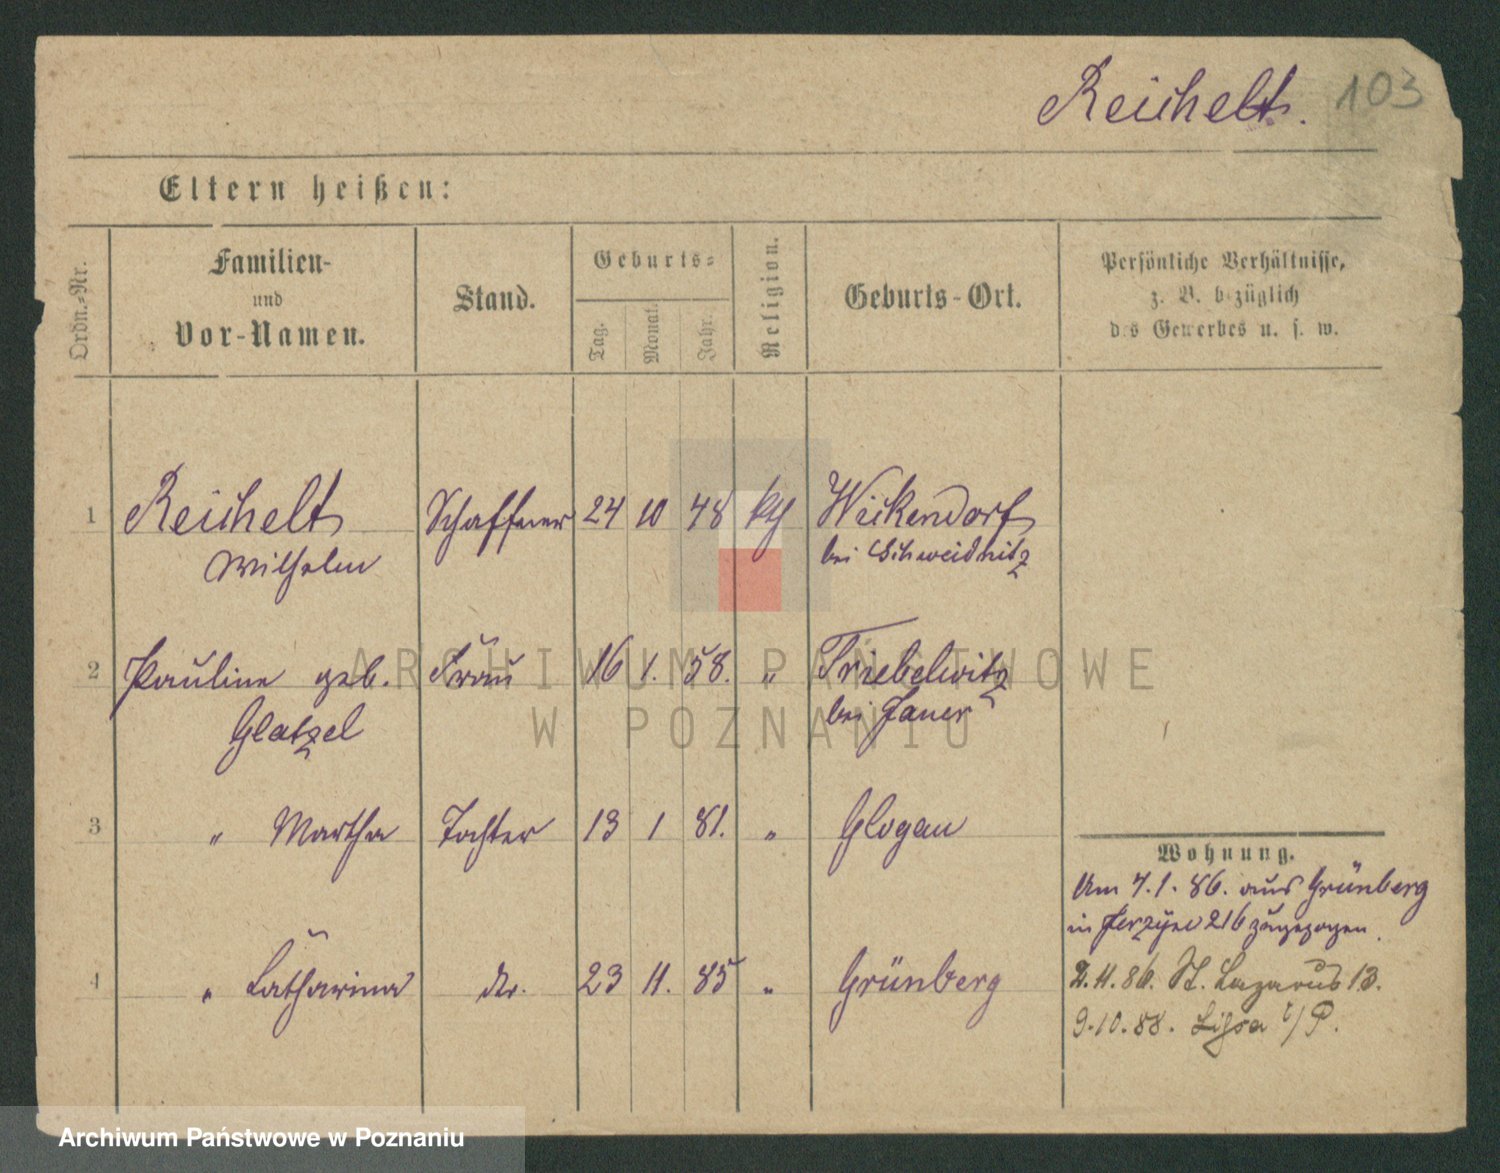 Reichelt. 103
Eltern heißen:
Ordn.-Nr. Familien- und Vor-Namen. Stand. Geburts- Tag. Monat. Jahr. Religion. Geburts-Ort. Persönliche Verhältnisse, z. B. bezüglich des Gewerbes u. s. w.
1 Reichelt Schaffner 24 10 48 kth Weikendorf
Wilhelm bei Schweidnitz
2 Pauline geb. Frau 16 1. 58. " Triebelwitz
Glatzel bei Jauer
3 " Martha Tochter 13 1 81. " Glogau
Wohnung.
Am 7.1.86. aus Grünberg
in Jerzyce 216 zugezogen.
4 " Katharina do. 23 11. 85 " Grünberg
2.11.86. St. Lazarus 13.
9.10.88. Lissa i/P.
ARCHIWUM PAŃSTWOWE
W POZNANIU
Archiwum Państwowe w Poznaniu